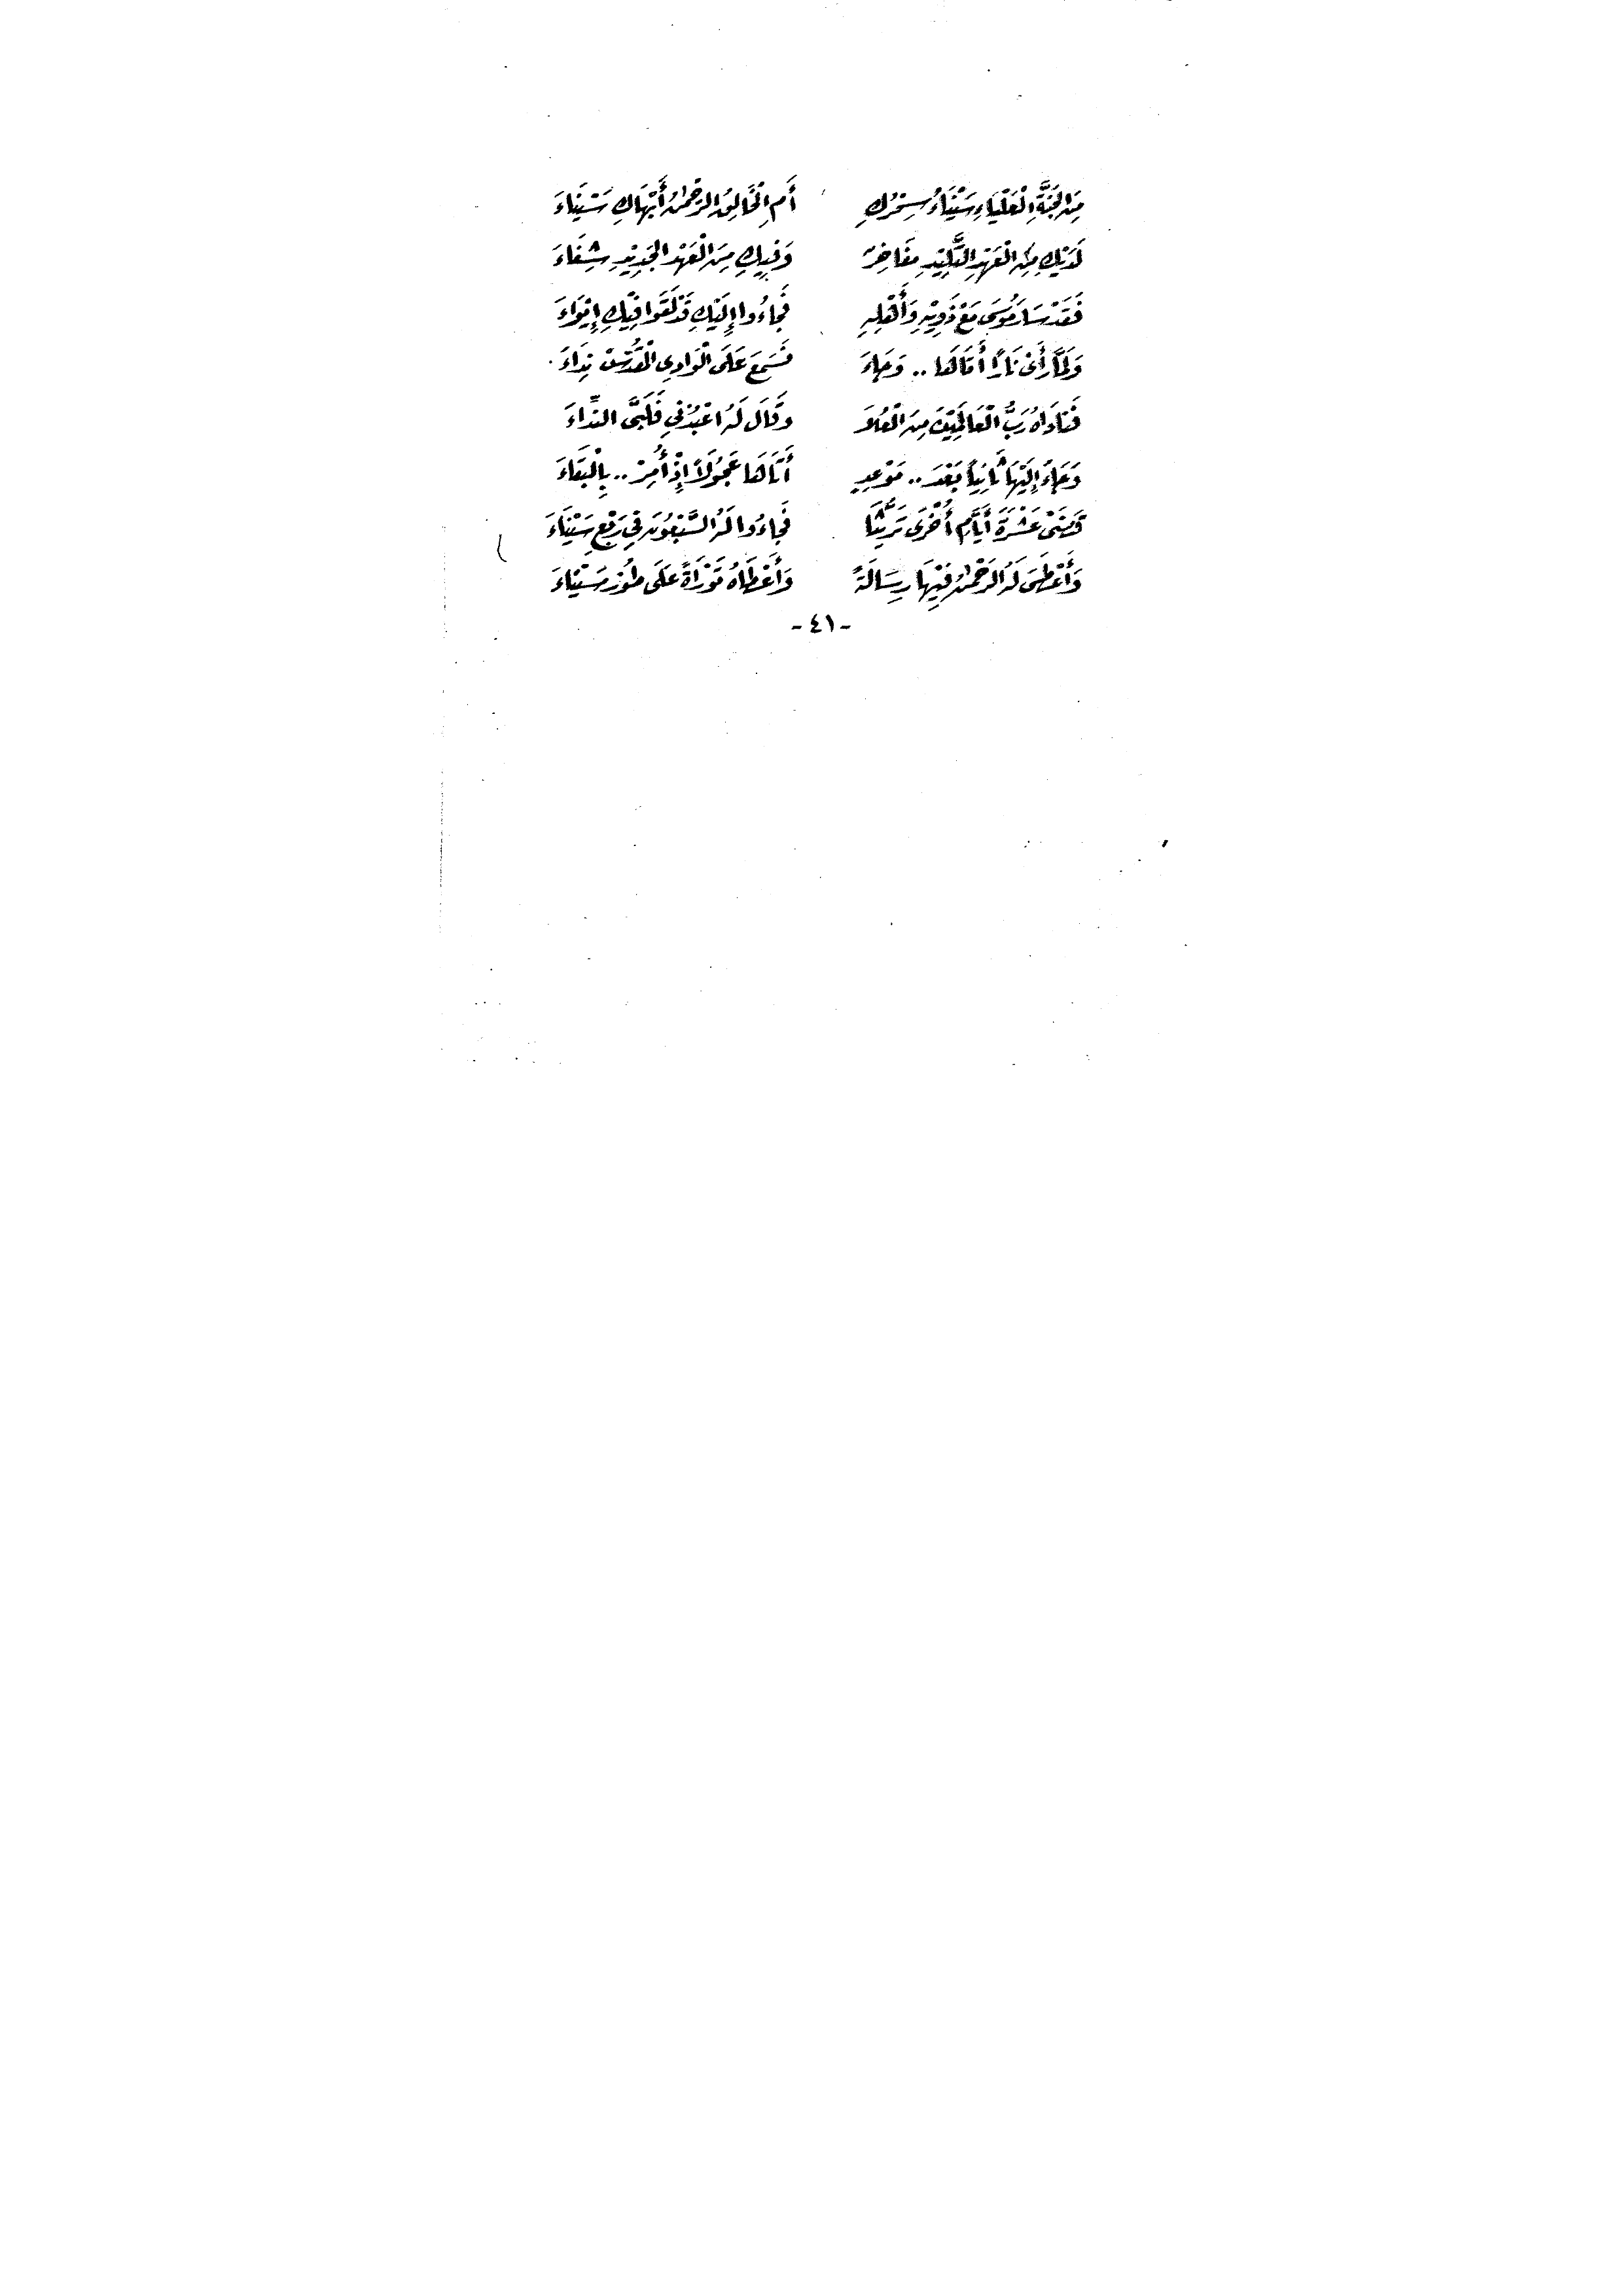 مِنَ الجَنَّةِ الْعَلْيَاءِ سَيْنَاءُ سِحْرُكِ أَمِ الْخَالِقُ الرَّحْمٰنُ أَبْهَاكِ سَيْنَاءَ
لَدَيْكِ مِنَ الْعَهْدِ التَّلِيْدِ مَفَاخِرٌ وَفِيكِ مِنَ الْعَهْدِ الجَدِيْدِ شِفَاءَ
فَقَدْ سَارَ مُوسَى مَعْ ذَوِيْهِ وَأَهْلِهِ فَجَاءُوا إِلَيْكِ قَدْ لَقَوا فِيْكِ إِيْوَاءَ
وَلَمَّا رَأَىٰ نَارًا أَتَاهَا .. وَجَاءَ فَسَمِعَ عَلَى الْوَادِى الْمُقَدَّسِ نِدَاءَ .
فَنَادَاهُ رَبُّ الْعَالَمِيْنَ مِنَ الْعُلَا وَقَالَ لَهُ اعْبُدْنِي فَلَبَّى النِّدَاءَ
وَجَاءَ إِلَيْهَا ثَانِيًا بَعْدَ .. مَوْعِدٍ أَتَاهَا عَجُوْلًا إِذْ أُمِرْ .. بِالْبَقَاءَ
قَضَىٰ عَشْرَةَ أَيَّامٍ أُخْرَى تَرَيُّثًا فَجَاءُوا لَهُ السَّبْعُونَ فِي رَبْعِ سَيْنَاءَ
وَأَعْطَى لَهُ الرَّحْمٰنُ فِيْهَا رِسَالَةً وَأَعْطَاهُ تَوْرَاةً عَلَى طُوْرِ سَيْنَاءَ
- ٤١ -